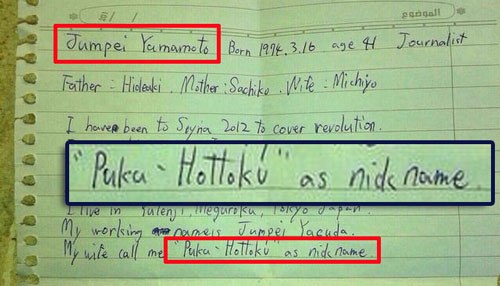 الموضوع
Jumpei Yamamoto Born 1974.3.16 age 41 Journalist
Father : Hideaki, Mother : Sachiko, Wife : Michiyo
I have been to Seyna 2012 to cover revolution.
"Puka - Hottoku" as nick name.
I live in Yutenji, Meguroku, Tokyo Japan.
My working nameis Jumpei Yacuda.
My wife call me "Puka - Hottoku" as nick name.